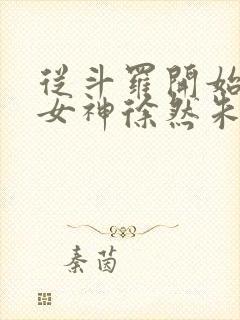 從斗羅開始
女神徐然朱
秦茵